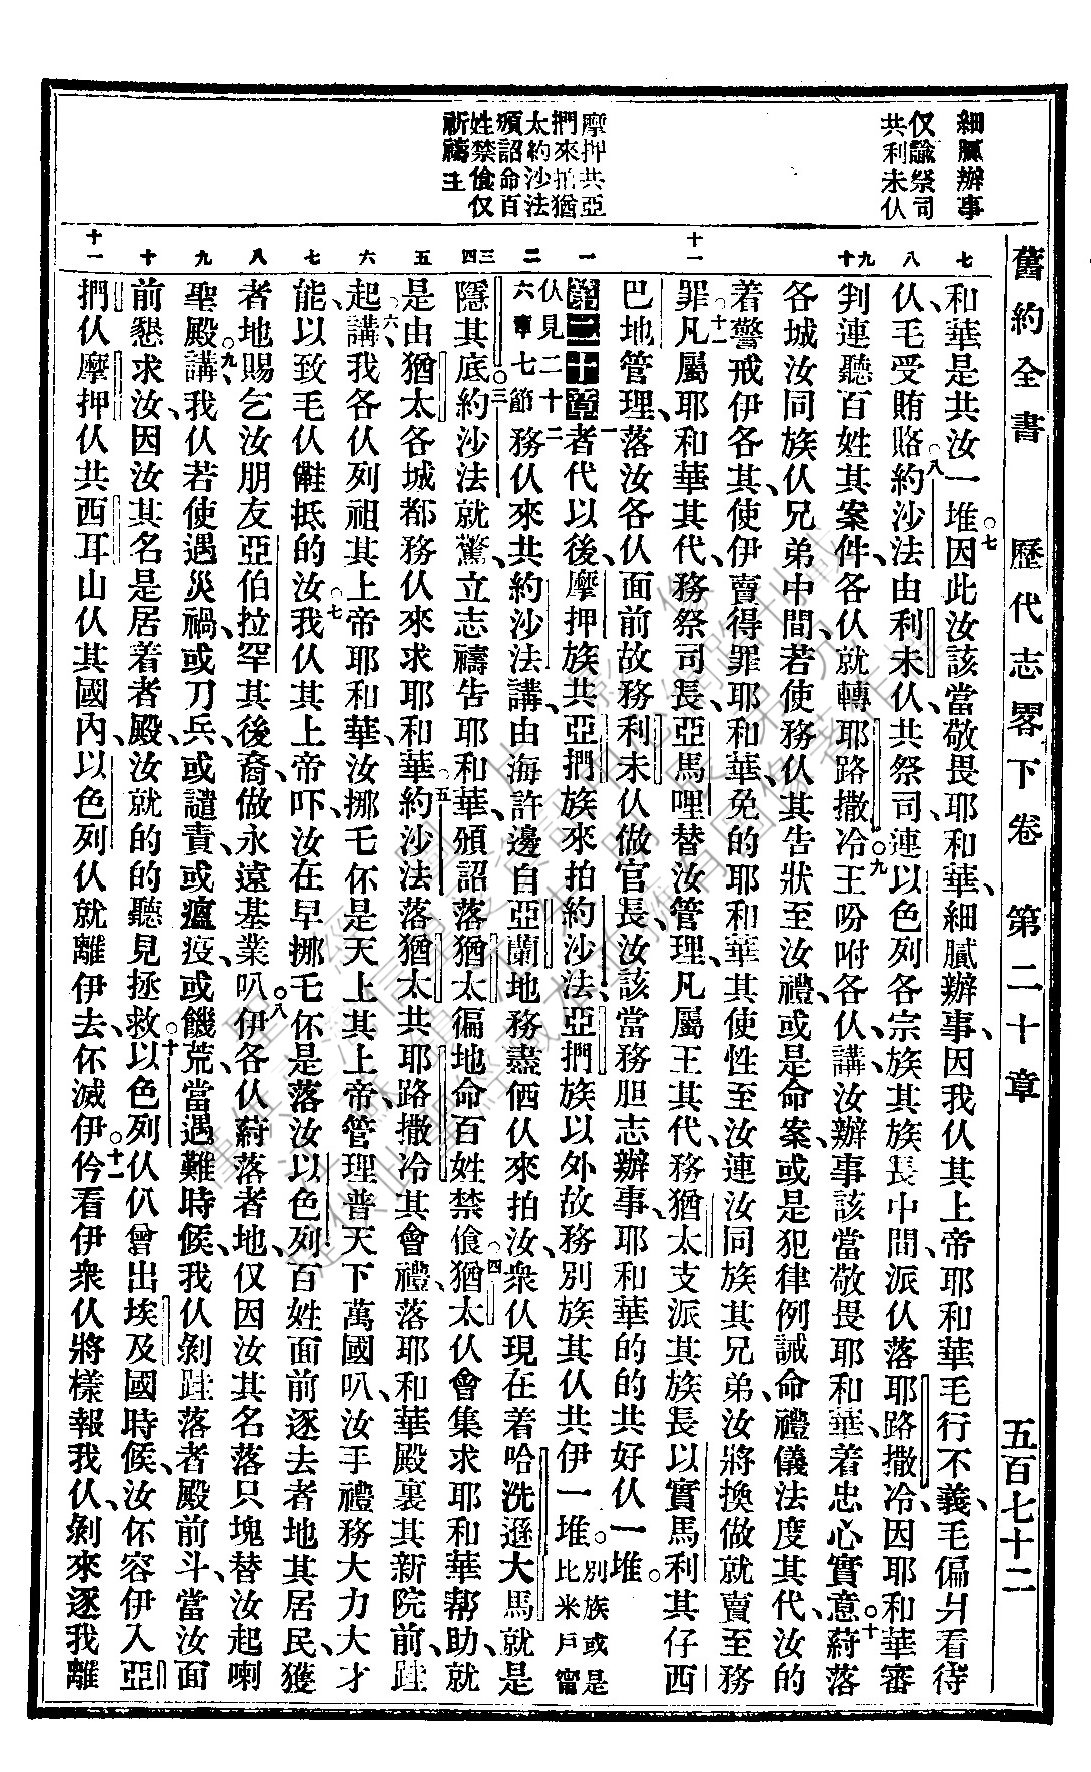 舊約全書　歷代志畧下卷　第二十章　五百七十二
細膩辦事
仅諭祭司
共利未仈
摩押共亞
捫來拍猶
太約沙法
頒詔命百
姓禁飡仅
祈禱主
七
八
九十
十一
一
二
三四
五
六
七
八
九
十
十一
和華是共汝一堆因此汝該當敬畏耶和華、細膩辦事、因我仈其上帝耶和華毛行不義、毛偏爿看待
仈、毛受賄賂、約沙法由利未仈共祭司、連以色列各宗族其族長中間、派仈落耶路撒冷、因耶和華審
判、連聽百姓其案件、各仈就轉耶路撒冷、王吩咐各仈講、汝辦事該當敬畏耶和華、着忠心實意、蔚落
各城汝同族仈兄弟中間、若使務仈其告狀至汝禮、或是命案、或是犯律例誡命禮儀法度其代、汝的
着警戒伊各其、使伊賣得罪耶和華、免的耶和華其使性至汝、連汝同族其兄弟、汝將換做就賣至務
罪、凡屬耶和華其代、務祭司長亞馬哩替汝管理、凡屬王其代、務猶太支派其族長以實馬利其仔西
巴地管理、落汝各仈面前故務利未仈做官長、汝該當務胆志辦事、耶和華的的共好仈一堆。
第二十章 一者代以後、摩押族共亞捫族來拍約沙法、亞捫族以外故務別族其仈共伊一堆。別族或是比米戶甯
仈見二十六章七節 二務仈來共約沙法講、由海許邊自亞蘭地務盡価仈來拍汝、衆仈現在着哈洗遜大馬、就是
隱其底、約沙法就驚、立志禱告耶和華、頒詔落猶太徧地命百姓禁飡、猶太仈會集求耶和華幫助、就
是由猶太各城都務仈來求耶和華、約沙法落猶太共耶路撒冷其會禮、落耶和華殿裏其新院前、𨀣
起講、我各仈列祖其上帝耶和華、汝挪乇伓是天上其上帝、管理普天下萬國叭、汝手禮務大力大才
能、以致毛仈儺抵的汝、我仈其上帝吓、汝在早挪乇伓是落汝以色列百姓面前逐去者地其居民、獲
者地賜乞汝朋友亞伯拉罕其後裔、做永遠基業叭、伊各仈蔚落者地、仅因汝其名落只塊替汝起喇
聖殿、講、我仈若使遇災禍、或刀兵、或譴責、或瘟疫、或饑荒、當遇難時候、我仈剝𨀣落者殿前斗、當汝面
前懇求汝、因汝其名是居着者殿、汝就的的聽見拯救、以色列仈仈曾出埃及國時候、汝伓容伊入亞
捫仈摩押仈共西耳山仈其國內、以色列仈就離伊去、伓滅伊、仱看伊衆仈將樣報我仈、剝來逐我離